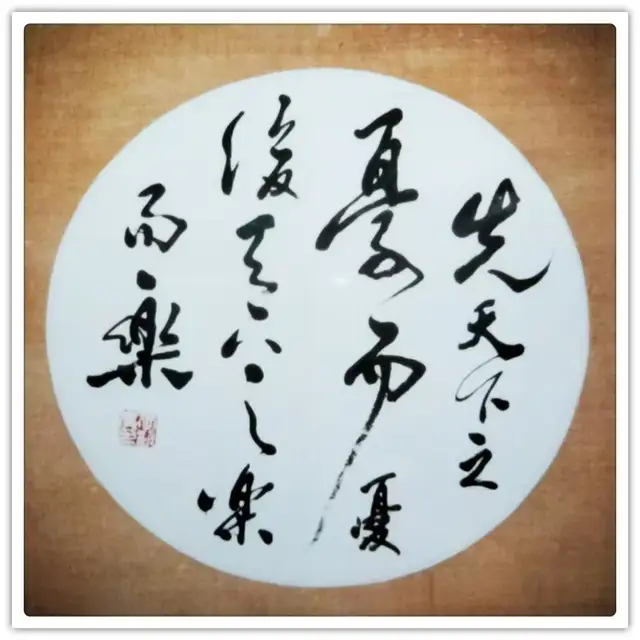 先天下之
憂而憂
後天下之樂
而樂